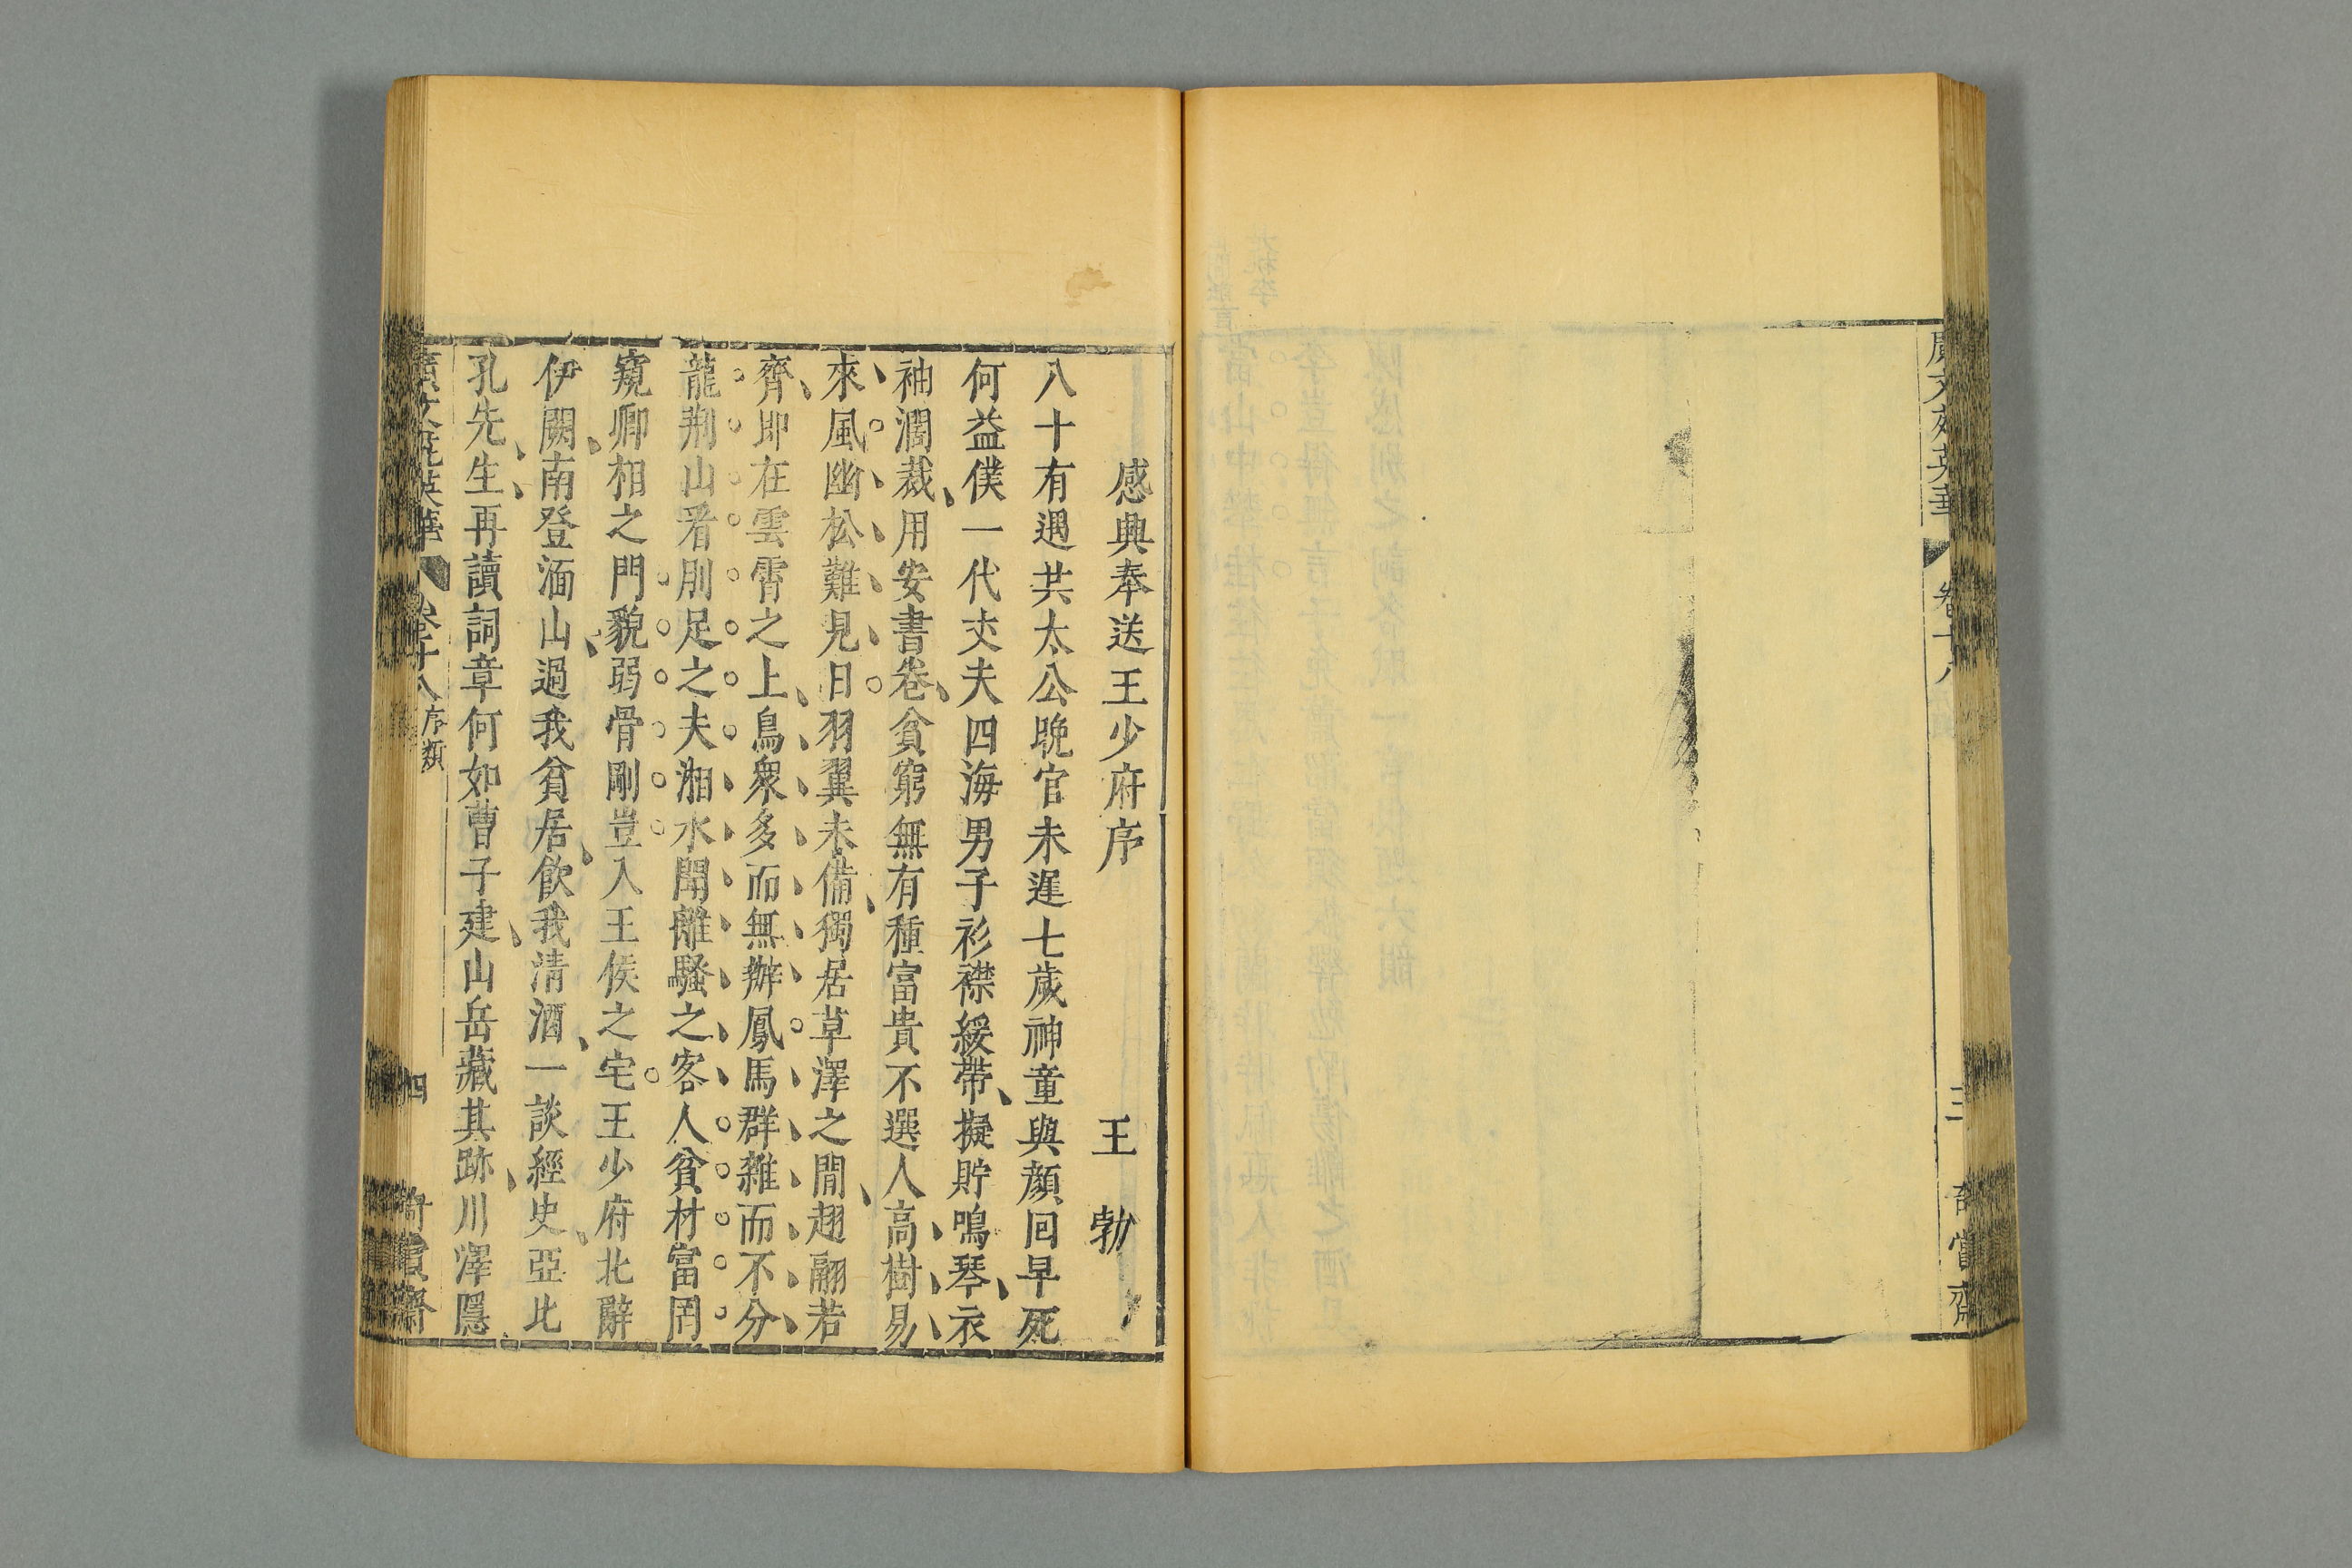 廣文苑英華 卷十八 三 詩賞齋
感興奉送王少府序 王勃
八十有遇共太公晚官未遲七歲神童與顏回早死
何益僕一代丈夫四海男子衫襟緩帶擬貯鳴琴衣
袖濶裁用安書卷貧窮無有種富貴不選人高樹易
來風幽松難見日羽翼未備獨居草澤之間翅翮若
齊即在雲霄之上鳥衆多而無辦鳳馬群雜而不分
龍荆山看刖足之夫湘水聞離騷之客人貧材富罔
窺卿相之門貌弱骨剛豈入王侯之宅王少府北辭
伊闕南登湎山過我貧居飲我清酒一談經史亞比
孔先生再讀詞章何如曹子建山岳藏其跡川澤隱
廣文苑英華 卷十八 序類 四